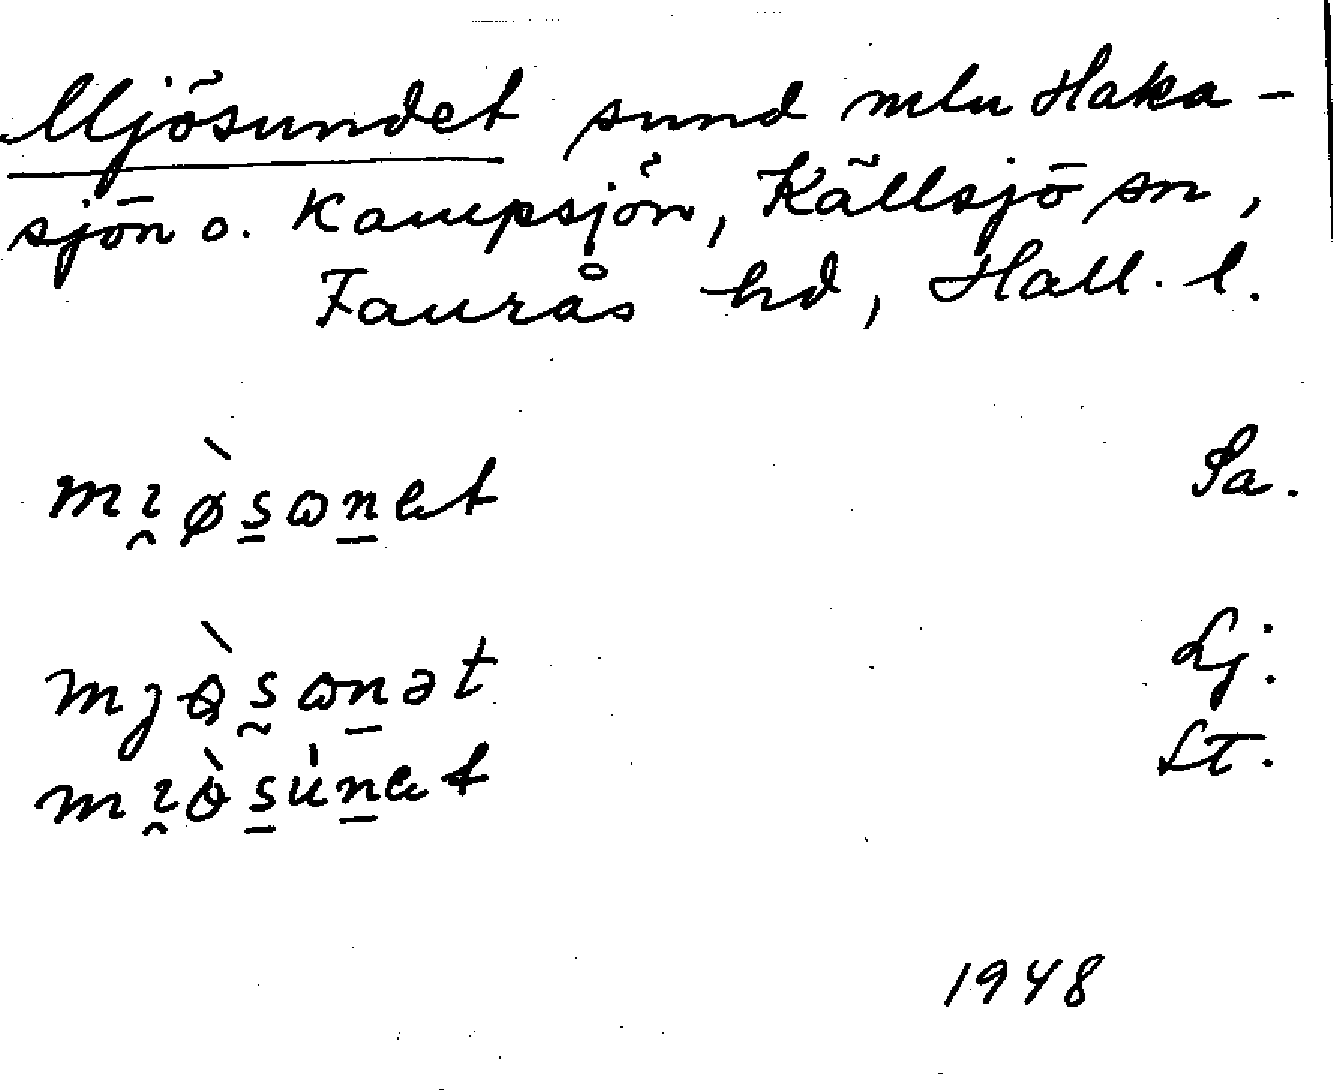 Mjösundet sund mlu Haka-
sjön o. Kampsjön, Källsjö sn,
Faurås hd, Hall. l.
mı̯ø̀s̱ωṉet Sa.
mȷɵ̀s̰ωṉət Lj.
mı̯ɵ̀s̱u̍ṉet Lt.
1948